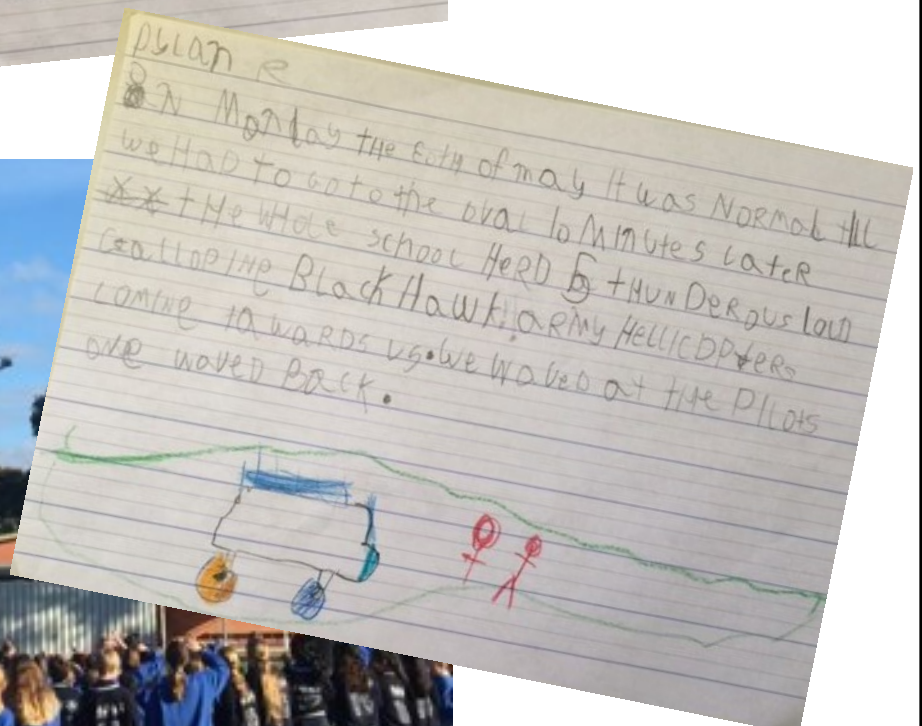 Dylan e
ON Monday the 8oth of may It was NORMAL till
we Had To Go to the oval 10 Minutes Later
the whole school HeRD 6 tHUNDeRous loud
Galloping Black Hawk army Hellicopters
coming tawards us. we waved at the Pilots
one waved Back.